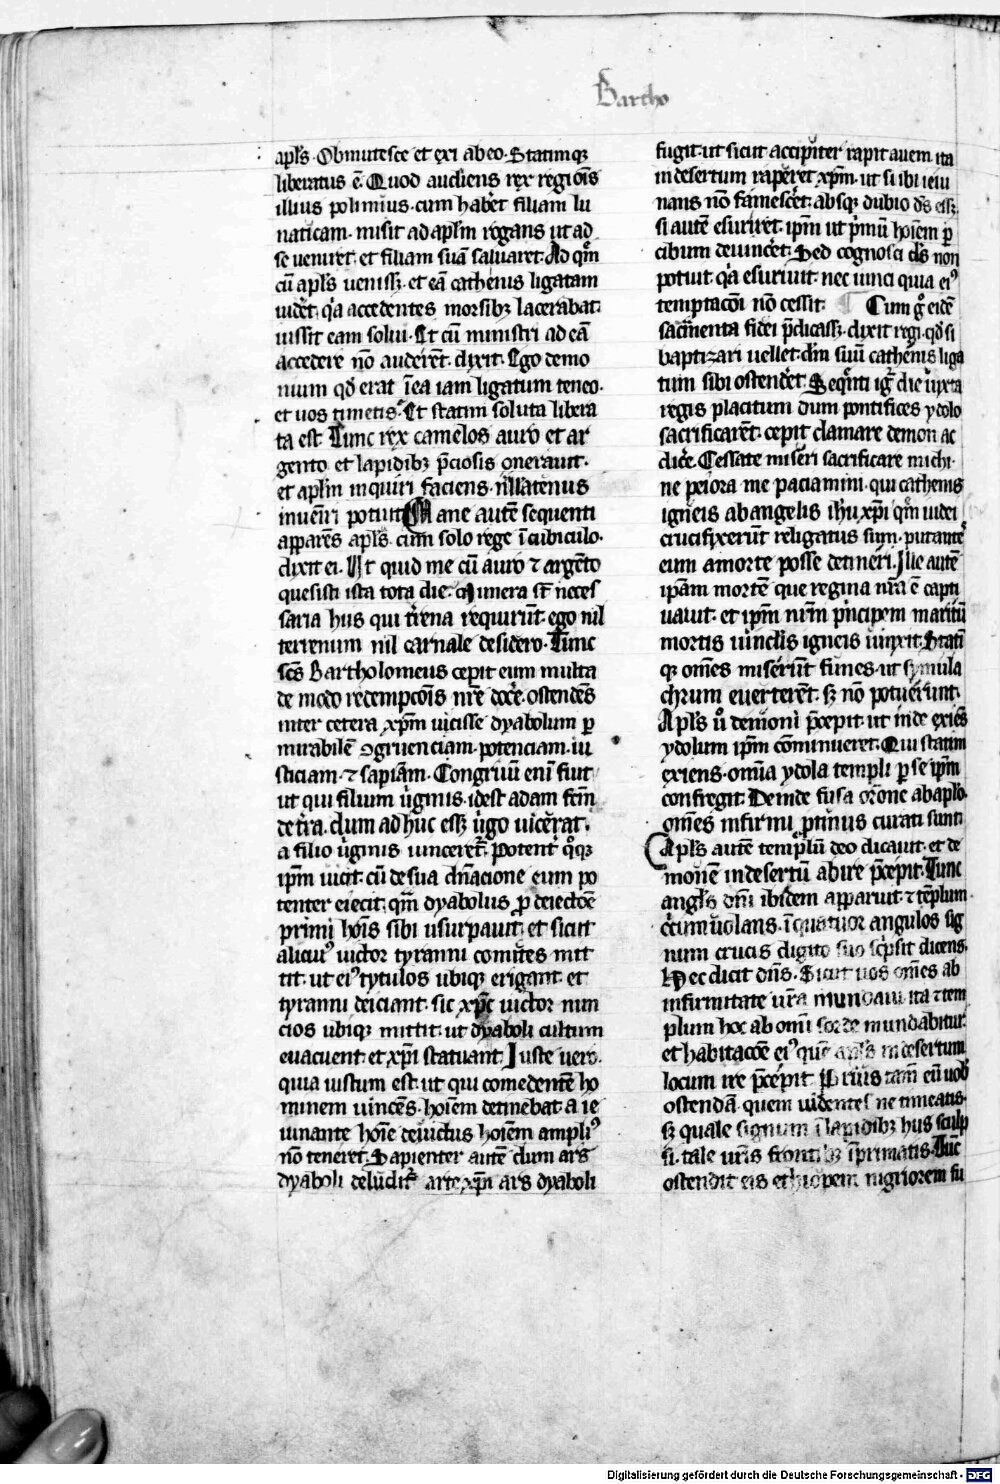 Bartho
apl̃s. Obmutesce et exi ab eo. Statimqꝫ
liberatus ẽ. Quod audiens rex regiõis
illius polimius. cum hab̾et filiam lu
naticam. misit ad apl̃m rogans ut ad
se veniret. et filiam suã saluaret. Ad q̃m
cũ apl̃s veniss̾. et eã cathenis ligatam
uid̾et. q̾a accedentes morsibꝫ lacerabat.
iussit eam solui. Et cũ ministri ad eã
accedere nõ auder̃ent. dixit. Ego demo
nium qd̾ erat ĩ ea iam ligatum teneo.
et uos timetis. Et statim soluta libera
ta est. Tunc rex camelos auro et ar
gento et lapidibꝫ p̃ciosis onerauit.
et apl̃m inquiri faciens. nllatenus
inuen̾iri potuit. Mane autẽ sequenti
apparẽs apl̃s. cum solo rege ĩ cubiculo.
dixit ei. Ut quid me cũ auro ⁊ argẽto
quesisti ista tota die. Munera st̾ neces
saria hiis qui t̾rena requirũt. ego nil
terrenum nil carnale desidero. Tunc
sc̃s Bartholomeus cepit eum multa
de modo redempcõis nr̃e doc̾e. ostendẽs
inter cetera xp̃m uicisse dyabolum p
mirabilẽ ꝯgruenciam. potenciam. iu
sticiam. ⁊ sapiãm. Congruũ eni̾ fuit
ut qui filium ũginis. id est adam fc̃m
de t̾ra. dum adhuc ess̾ ũgo uic̾erat.
a filio ũginis uinceret̾. Potent̾ q̊qꝫ
ip̃m uicit. cũ de sua dñacione eum po
tenter eiecit. qm̃ dyabolus ꝓ deiectõe
primi hoĩs sibi usurpauit. et sicut
alicui᷒ uictor tyranni comites mit
tit. ut ei᷒ tytulos ubiqꝫ erigant. et
tyranni deiciant. sic xp̃c uictor nun
cios ubiqꝫ mittit. ut dyaboli cultum
euacuent. et xp̃i statuant. Iuste uero.
quia iustum est. ut qui comedentẽ ho
minem uincẽs. hoĩem detinebat. a ie
iunante hoĩe deuictus hoĩem ampli᷒
nõ teneret. Sapienter autẽ dum ars
dyaboli deludit̾ arte xp̃i. ars dyaboli
fugit. ut sicut accipiter rapit auem. ita
in desertum raperet xp̃m. ut si ibi ieiu
nans nõ famesc̾et. absqꝫ dubio d̾s ess̾.
si autẽ esuriret. ip̃m ut p̾mũ hoĩem p̲
cibum deuinc̾et. Sed cognosci d̾s non
potuit. q̾a esuriuit. nec uinci quia ei᷒
temptacõi nõ cessit. ¶ Cum g̊ eidẽ
sacramenta fidei p̃dicass̾. dixit regi. qd̾ si
baptizari uellet. d̾m suũ cathenis liga
tum sibi ostend̾et. Sequẽti ig̾ die iuxta
regis placitum dum pontifices ydolo
sacrificarẽt. cepit clamare demon ac
dic̾e. Cessate mis̾eri sacrificare michi.
ne peiora me paciamini. qui cathenis
igneis ab angelis ih̾u xp̃i q̃m iudei
crucifixerũt religatus sum. putantes
eum a morte posse detineri. Ille autẽ
ipãm mortẽ que regina nr̃a ẽ capti
uauit. et ip̃m nr̃m p̾ncipem maritũ
mortis uinclis igneis uinxit. Statĩ
qꝫ om̃es mis̾erũt funes. ut symula
chrum euerterẽt. sꝫ nõ potuerunt.
Apl̃s ũ demoni p̃cepit. ut inde exiẽs
ydolum ip̃m cõminueret. Qui statim
exiens. om̃ia ydola templi p̲ se ip̃m
confregit. Deinde fusa orõne ab apl̃o.
om̃es infirmi ꝓtinus curati sunt.
Apl̃s autẽ templũ deo dicauit. et de
monẽ in desertũ abire p̃cepit. Tunc
angl̃s dñi ibidem apparuit. ⁊ tẽplum
c̾cũuolans. ĩ quatuor angulos sig
num crucis digito suo sc̾psit dicens.
Hec dicit dñs. Sicut uos om̃es ab
infirmitate ur̃a mundaui. ita ⁊ tem
plum hoc ab om̃i sorde mundabitur.
et habitacõe ei᷒ quẽ apl̃s in desertum
locum ire p̃cepit. Prius tam̃ eũ uob̾
ostendã. quem uidentes ne timeatis.
sꝫ quale signum ĩ lapidibꝫ hiis sculp
si. tale ur̃is frontibꝫ ĩprimatis. Tũc
ostendit eis ethiopem nigriorem fu
Digitalisierung gefördert durch die Deutsche Forschungsgemeinschaft - DFG